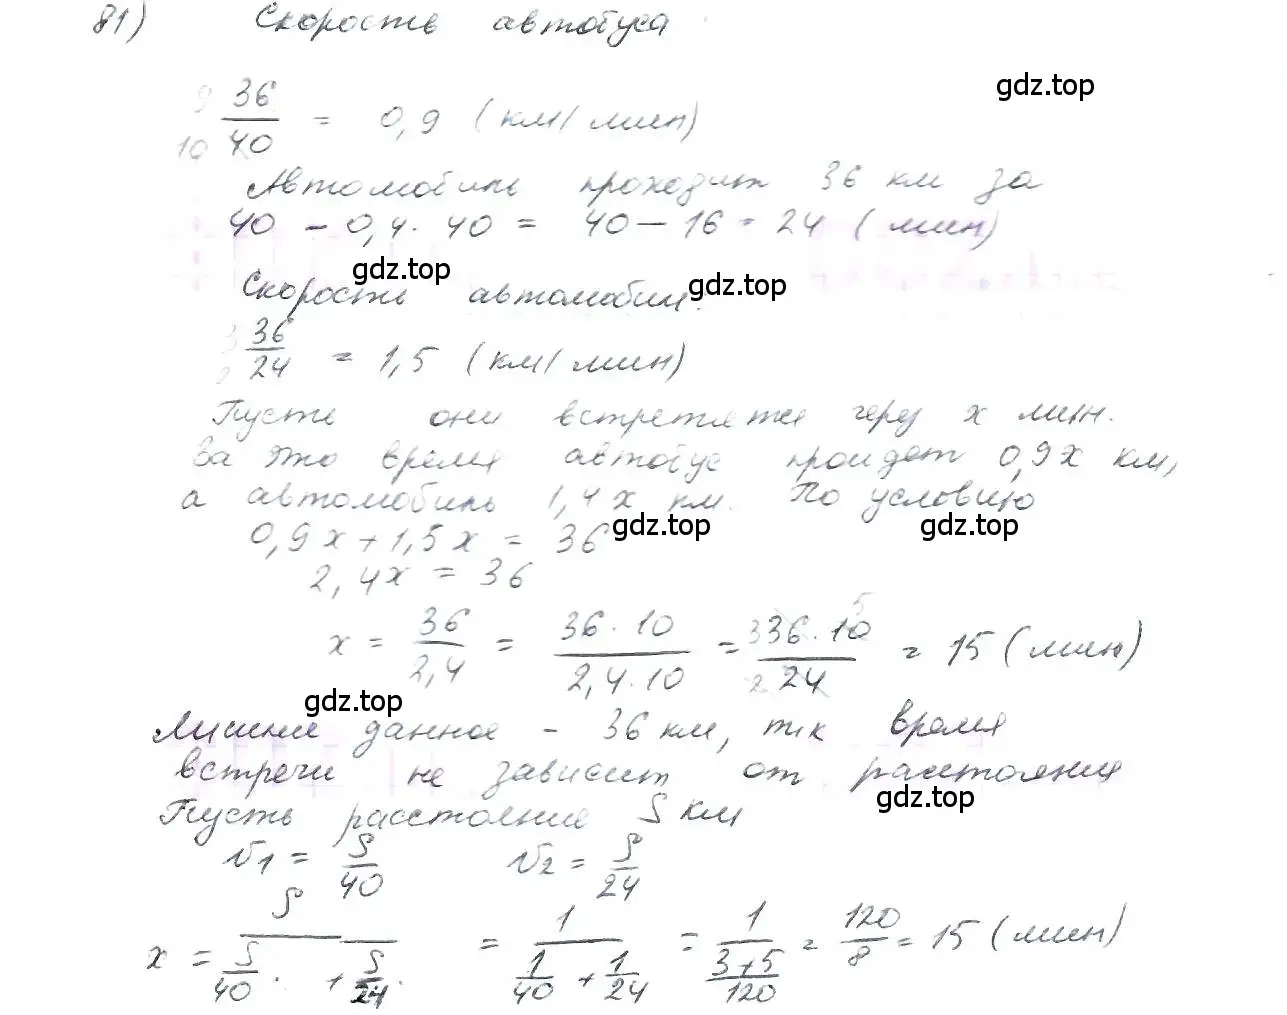 81) Скорость автобуса
gdz.top
36/40 = 0,9 (км/мин)
9 10
Автомобиль проходит 36 км за
40 - 0,4 · 40 = 40 - 16 = 24 (мин)
gdz.top
Скорость автомобил.
gdz.top
36/24 = 1,5 (км/мин)
Пусть они встретятся через x мин.
За это время автобус пройдет 0,9x км,
а автомобиль 1,4x км. По условию
0,9x + 1,5x = 36
gdz.top gdz.top
2,4x = 36
x = 36/2,4 = 36·10/2,4·10 = 36·10/24 = 15 (мин)
gdz.top
Лишние данное - 36 км, т.к время
встречи не зависит от расстояния
gdz.top
Пусть расстояние S км
v1 = S/40 v2 = S/24
x = S/(S/40 + S/24) = 1/(1/40 + 1/24) = 1/((3+5)/120) = 120/8 = 15 (мин)